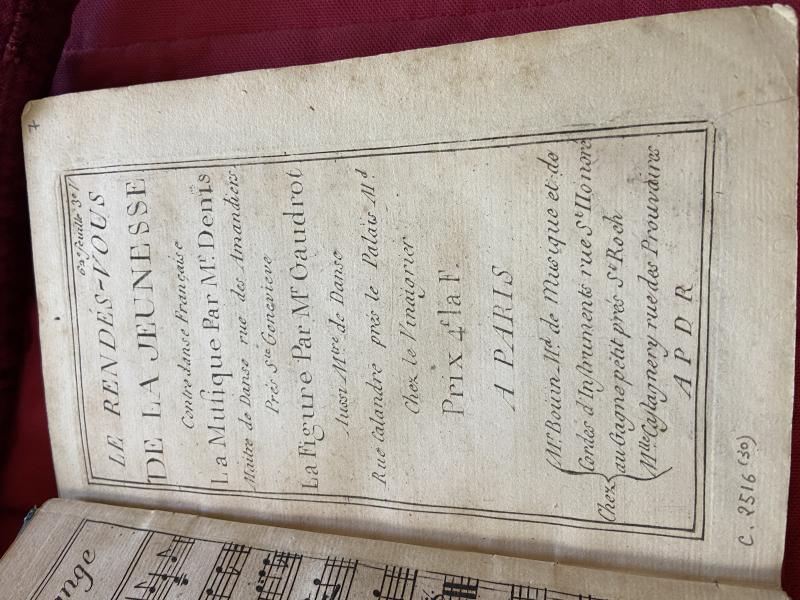 7
62e feuille 3e/
LE RENDÉS-VOUS
DE LA JEUNESSE
Contredanse Française
La Musique Par Mr. Denis
Maitre de Danse rue des Amandiers
Prés Ste Genevieve
La Figure Par Mr Gaudrot
Aussi Mtre de Danse
Rue Calandre prés le Palais Md
Chez le Vinaigrier
Prix 4f la F.
A PARIS
Chez
Mr. Boüin Md. de Musique et de
Cordes d'Instruments rue St Honoré
au Gagne petit prés St Roch
Mlle Castagnery rue des Prouvaires
A P D R
C. 2516 (30)
ange